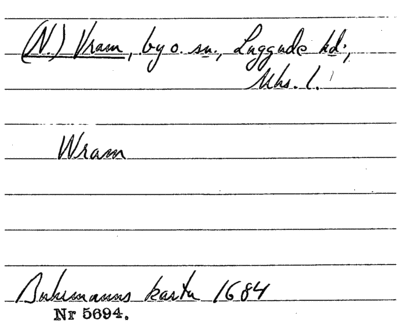 (N.) Vram, by o. sn., Luggude hd.,
Mhs. l.
Wram
Buhrmanns karta 1684
Nr 5694.